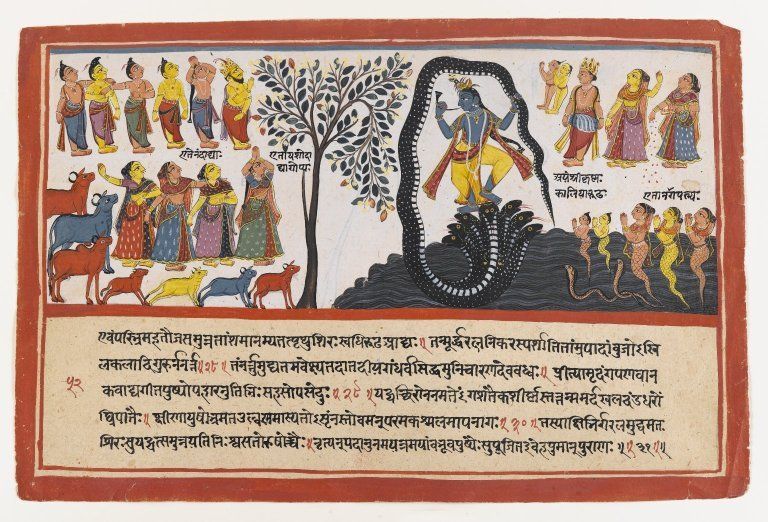 एतेनंदाद्याः
एतायशोदा
द्यागोप्यः
श्रीकृष्णः
कालियारूढः
एतानागपत्न्यः
एवंपरिभ्रमहतौजसमुन्नतांशमानम्यतत्पृथुशिरःस्वधिरूढआद्यः॥ तन्मूर्द्धरत्ननिकरस्पर्शातिताम्रपादांबुजोऽखि
लकलादिगुरुर्ननर्त्त॥२८॥ तंनर्तुमुद्यतमवेक्ष्यतदातदीयगंधर्वसिद्धमुनिचारणदेववध्वः॥ प्रीत्यामृदंगपणवान
५२
कवाद्यगीतपुष्पोपहारनुतिभिःसहसोपसेदुः॥२९॥ यद्यच्छिरोननमतेंगशतैकशीर्ष्णस्तत्तन्ममर्दखलदंडधरों
घ्रिपातैः॥ क्षीणायुषोभ्रमतउल्बणमास्यतोऽसृङ्नस्तोवमन्परमकश्मलमापनागः॥३०॥ तस्याक्षिभिर्गरलमुद्वमतः
शिरःसुयद्यत्समुन्नमतिनिःश्वसतोरुषोच्चैः॥ नृत्यन्पदानुनमयन्दमयांबभूवपुष्पैःसुपूजितइवेहपुमान्पुराणः॥३१॥